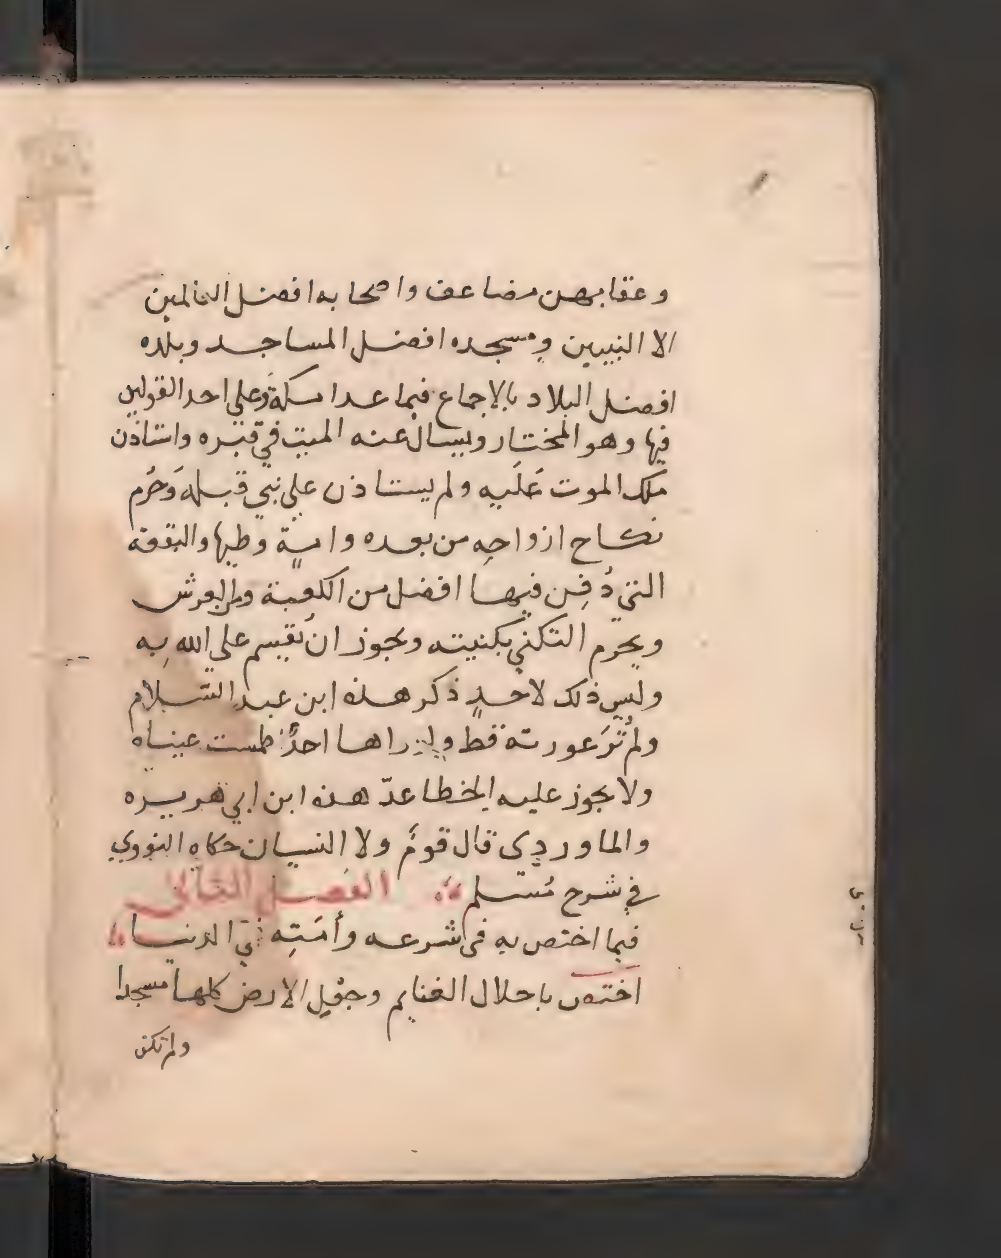 وعقابهن مضاعف واصحابه افضل العالمين
الا النبيين ومسجده افضل المساجد وبلده
افضل البلاد بالاجماع فيما عدا مكة وعلى احد القولين
فيها وهو المختار ويسال عنه الميت في قبره واستاذن
ملك الموت عَلَيه ولم يستاذن على نبي قبله وَحَرُم
نكاح ازواجِه من بعده وامة وطيها والبقعة
التي دُفِن فيها افضل من الكعبة ومن العرش
ويحرم التكني بكنيته ويجوز ان يُقسم على الله بِه
وليس ذلك لاحدٍ ذكر هذه ابن عبد السّلام
ولم تُرَ عورته قط ولو راها احدٌ طمست عيناه
ولا يجوز عليه الخطا عدّ هذه ابن ابي هريره
والماوردِى قال قومٌ ولا النسيان حكاه النووي
في شرح مُسْلم الفصل الثاني
فيما اختص به فى شرعه وأمَتِه في الدنيا
اختص باحلال الغنايم وجعل الارض كلها مسجدا
ولم تكن